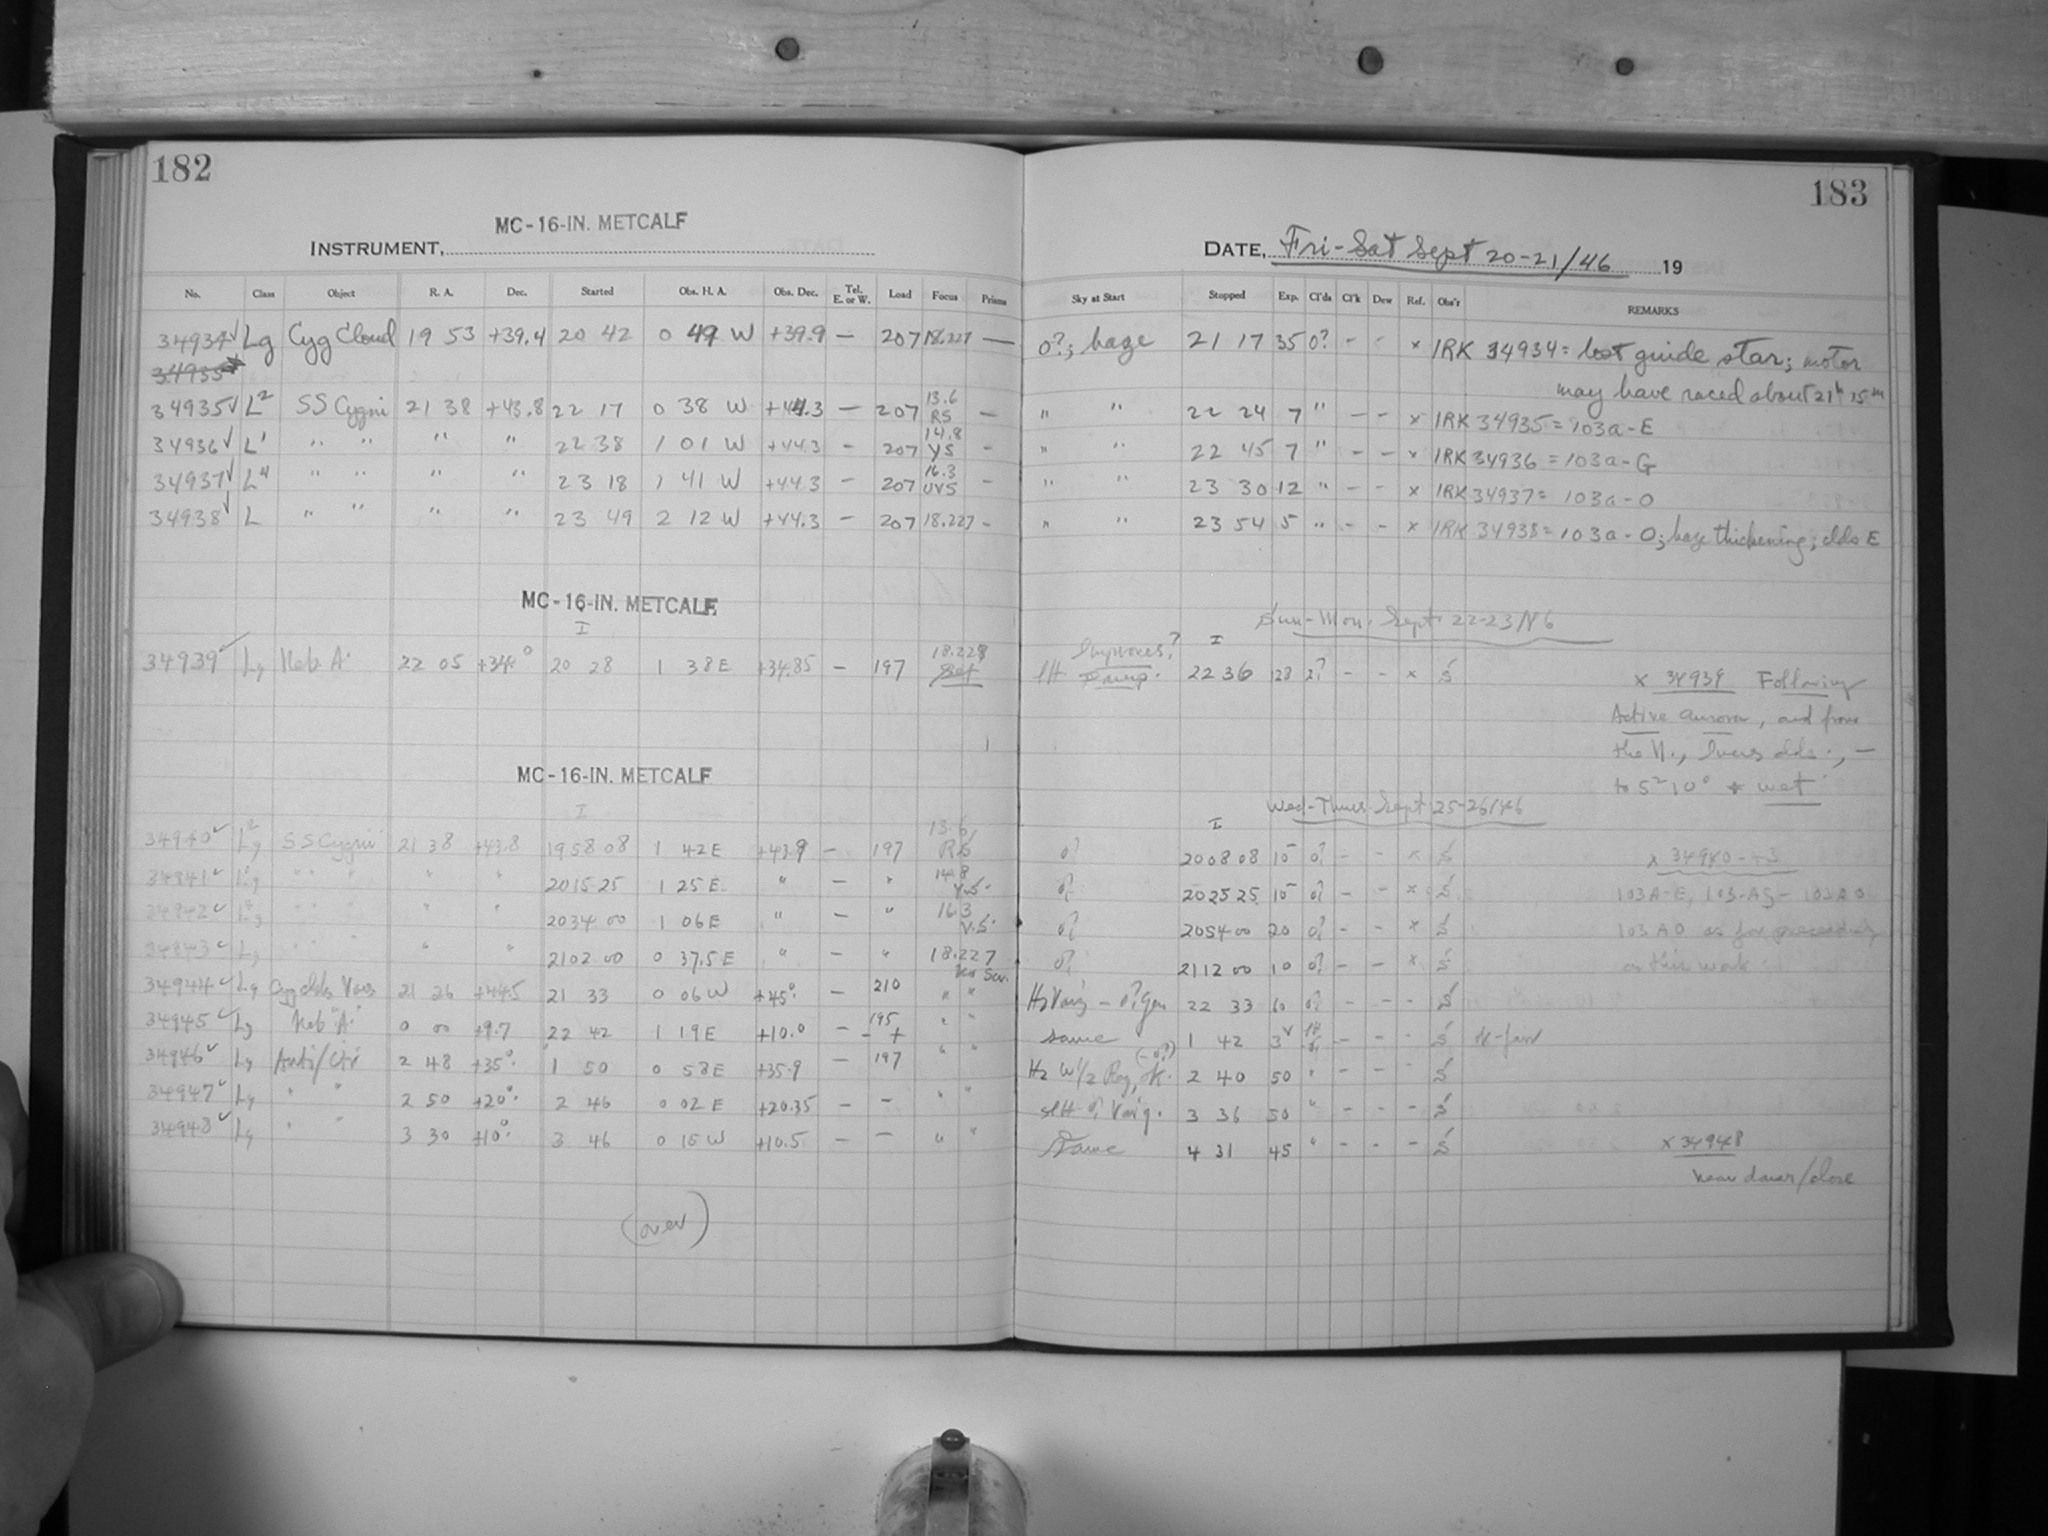 182
MC-16-IN. METCALF
INSTRUMENT,
No. Class Object R. A. Dec. Started Obs. H. A. Obs. Dec. Tel. E. or W. Load Focus Prisms
34934 ✓ Lg Cyg Cloud 19 53 +39.4 20 42 0 49 W +39.9 — 207 18.227 —
34935
34935 ✓ L2 SS Cygni 21 38 +43.8 22 17 0 38 W +44.3 — 207 13.6 RS —
34936 ✓ L1 " " " " 22 38 1 01 W +44.3 — 207 14.8 YS —
34937 ✓ L4 " " " " 23 18 1 41 W +44.3 — 207 16.3 UVS —
34938 ✓ L " " " " 23 49 2 12 W +44.3 — 207 18.227 —
MC-16-IN. METCALF
I
34939 ✓ Lg Neb A. 22 05 +34.° 20 28 1 38 E +34.85 — 197 18.228
MC-16-IN. METCALF
I
34940 ✓ Lg2 SS Cygni 21 38 +43.8 19 58 08 1 42 E +43.9 — 197 13.6 RS
34941 ✓ " " " " " 20 15 25 1 25 E " — " 14.8 Y.S.
34942 ✓ " " " " 20 34 00 1 06 E " — " 16.3 V.S.
34943 ✓ Lg " " " " 21 02 00 0 37.5 E " — " 18.227
34944 ✓ Lg Cyg clds Vars 21 26 +44.5 21 33 0 06 W +45° — 210 " "
34945 ✓ Lg Neb "A" 0 00 +9.7 22 42 1 19 E +10.0 — 195 " "
34946 ✓ Lg Anti/Ctr 2 48 +35° 1 50 0 58 E +35.9 — 197 " "
34947 ✓ Lg " " 2 50 +20° 2 46 0 02 E +20.35 — — " "
34948 ✓ Lg " " 3 30 +10° 3 46 0 15 W +10.5 — — " "
(over)
183
DATE, Fri-Sat Sept 20-21/46 19
Sky at Start Stopped Exp. Cl'ds Cl'k Dew Ref. Obs'r REMARKS
0?; haze 21 17 35 0? - - x IRK 34934 = lost guide star; motor
may have raced about 21h 15m
" " 22 24 7 " - - x IRK 34935 = 103a-E
" " 22 45 7 " - - x IRK 34936 = 103a-G
" " 23 30 12 " - - x IRK 34937 = 103a-O
" " 23 54 5 " - - x IRK 34938 = 103a-O; haze thickening; clds E
Sun-Mon. Sept. 22-23/46
Improves? I
22 36 128 2? - - x S x 34939 Following
Active aurora, and from
the N., clds., —
to 5h 10° + wet
Wed-Thurs Sept 25-26/46
I
0? 20 08 08 10 0? - - x S x 34940-43
0? 20 25 25 10 0? - - x S 103A-E, 103-AG - 103A0
0? 20 54 00 20 0? - - x S 103 A0 as for preceding
0? 21 12 00 10 0? - - x S on this work
Hz Var'g - 0? Gen 22 33 60 0? - - - S
same 1 42 3 - - - S
Hz W 1/2 Reg, (-0?) 2 40 50 " - - - S
slH 0? Var'g. 3 36 50 " - - - S
Same 4 31 45 " - - - S x 34948
near dawn/close